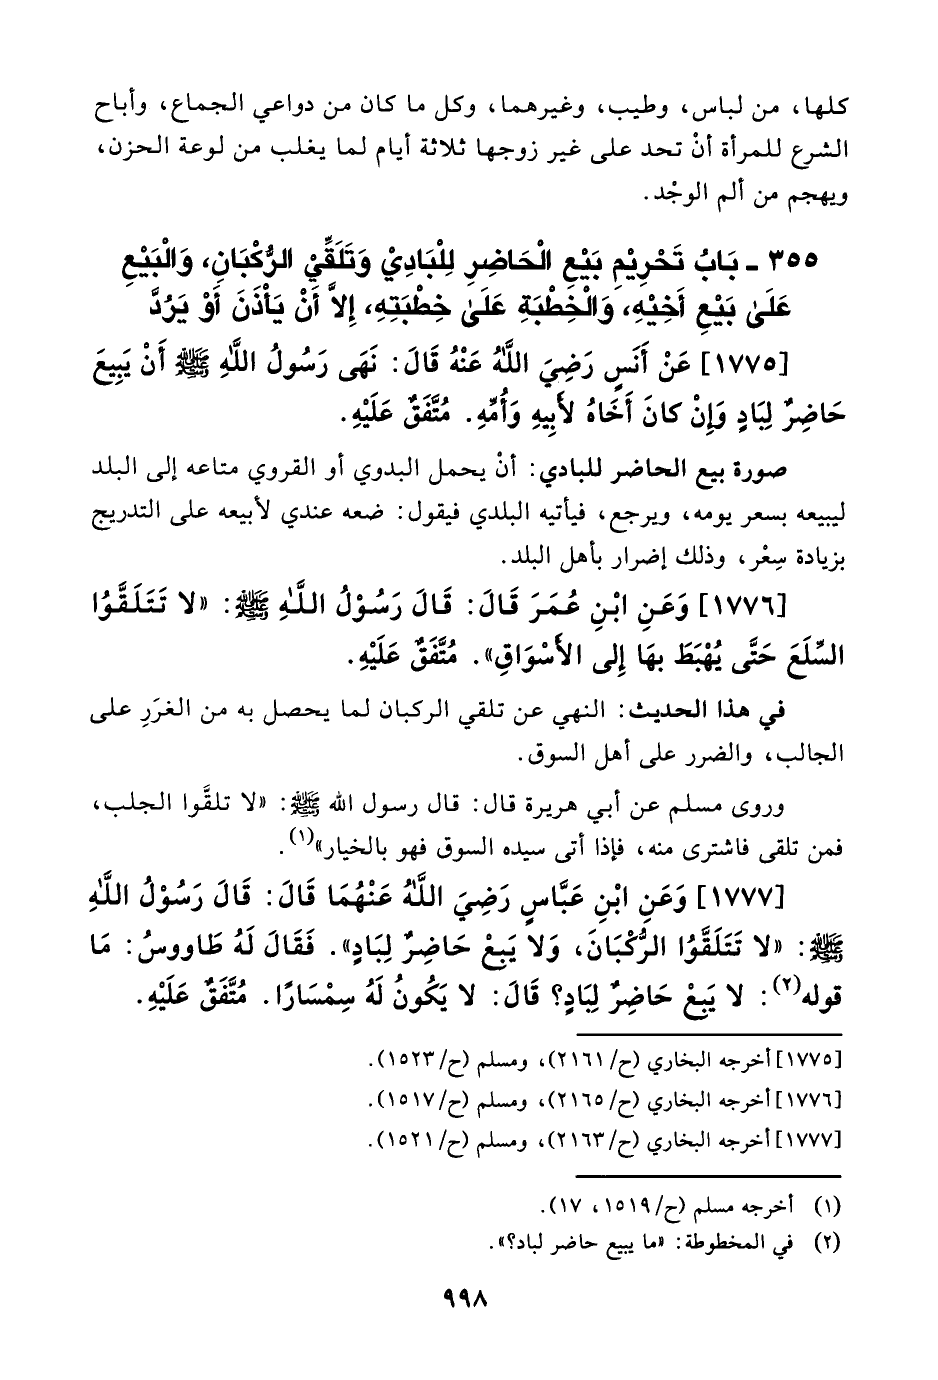 كلها، من لباس، وطيب، وغيرهما، وكل ما كان من دواعي الجماع، وأباح
الشرع للمرأة أنْ تحد على غير زوجها ثلاثة أيام لما يغلب من لوعة الحزن،
ويهجم من ألم الوجْد.
٣٥٥ ـ بَابُ تَحْرِيْمِ بَيْعِ الْحَاضِرِ لِلْبَادِيْ وَتَلَقِّيْ الرُّكْبَانِ، وَالْبَيْعِ
عَلَىٰ بَيْعِ أَخِيْهِ، وَالْخِطْبَةِ عَلَىٰ خِطْبَتِهِ، إِلاَّ أَنْ يَأْذَنَ أَوْ يَرُدَّ
[١٧٧٥] عَنْ أَنَسٍ رَضِيَ اللَّهُ عَنْهُ قَالَ: نَهَى رَسُولُ اللَّهِ ﷺ أَنْ يَبِيعَ
حَاضِرٌ لِبَادٍ وَإِنْ كانَ أَخَاهُ لأَبِيهِ وَأُمِّهِ. مُتَّفَقٌ عَلَيْهِ.
صورة بيع الحاضر للبادي: أنْ يحمل البدوي أو القروي متاعه إلى البلد
ليبيعه بسعر يومه، ويرجع، فيأتيه البلدي فيقول: ضعه عندي لأبيعه على التدريج
بزيادة سِعْر، وذلك إضرار بأهل البلد.
[١٧٧٦] وَعَنِ ابْنِ عُمَرَ قَالَ: قَالَ رَسُوْلُ اللَّهِ ﷺ: «لا تَتَلَقَّوُا
السِّلَعَ حَتَّى يُهْبَطَ بهَا إِلى الأَسْوَاقِ». مُتَّفَقٌ عَلَيْهِ.
في هذا الحديث: النهي عن تلقي الركبان لما يحصل به من الغرَرِ على
الجالب، والضرر على أهل السوق.
وروى مسلم عن أبي هريرة قال: قال رسول الله ﷺ: «لا تلقَّوا الجلب،
فمن تلقى فاشترى منه، فإذا أتى سيده السوق فهو بالخيار»(١).
[١٧٧٧] وَعَنِ ابْنِ عَبَّاسٍ رَضِيَ اللَّهُ عَنْهُمَا قَالَ: قَالَ رَسُوْلُ اللَّهِ
ﷺ: «لا تَتَلَقَّوُا الرُّكْبَانَ، وَلا يَبِعْ حَاضِرٌ لِبَادٍ». فَقَالَ لَهُ طَاووسُ: مَا
قوله(٢): لا يَبِعْ حَاضِرٌ لِبَادٍ؟ قَالَ: لا يَكُونُ لَهُ سِمْسَارًا. مُتَّفَقٌ عَلَيْهِ.
[١٧٧٥] أخرجه البخاري (ح/٢١٦١)، ومسلم (ح/١٥٢٣).
[١٧٧٦] أخرجه البخاري (ح/٢١٦٥)، ومسلم (ح/١٥١٧).
[١٧٧٧] أخرجه البخاري (ح/٢١٦٣)، ومسلم (ح/١٥٢١).
(١) أخرجه مسلم (ح/١٥١٩، ١٧).
(٢) في المخطوطة: «ما يبيع حاضر لباد؟».
٩٩٨